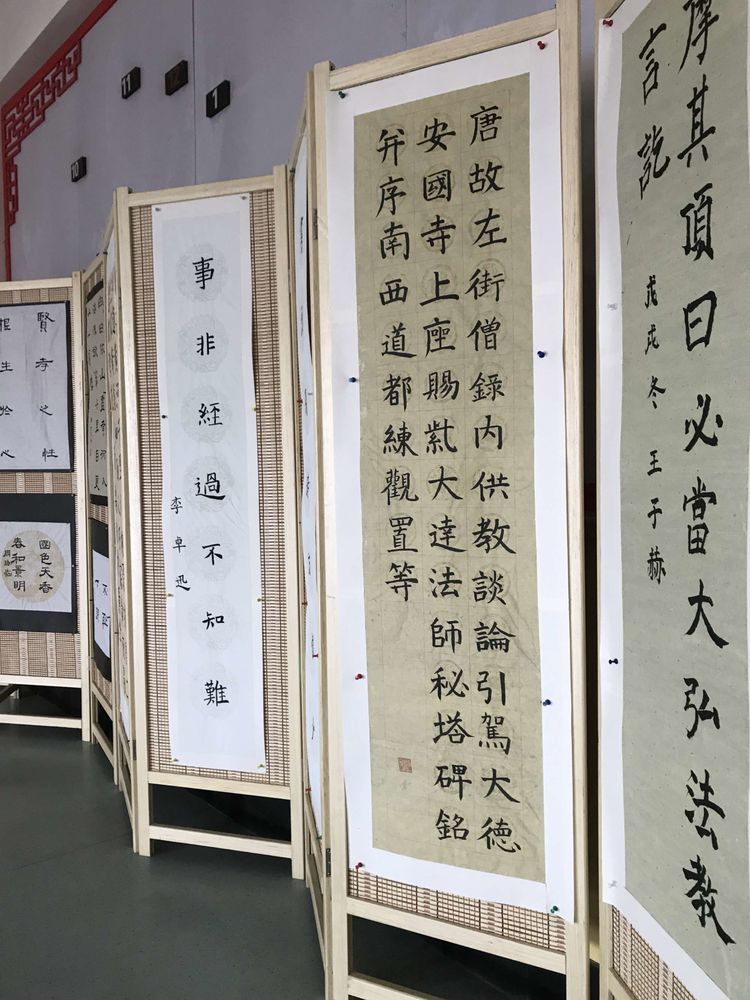 摩其頂曰必當大弘法教
言訖
戊戌冬 王子赫
唐故左街僧錄内供教談論引駕大德
安國寺上座賜紫大達法師秘塔碑銘
并序南西道都練觀置等
事非經過不知難
李卓迅
賢孝之性
生於心
國色天香
春和景明
11
12
1
10